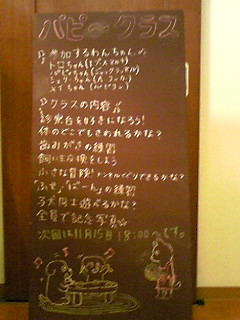 パピークラス
♪参加するわんちゃん♪
トロちゃん(ミックス)
パピィちゃん(ジャックラッセル)
ジェリーちゃん(A.コッカー)
メイちゃん(パピヨン)
♪クラスの内容♪
診察台を好きになろう!
体のどこでもさわれるかな?
歯みがきの練習
飼い主交換をしよう
小さな冒険!トンネルくぐりできるかな?
「ふせ」「ばーん」の練習
子犬同士遊べるかな?
全員で記念写真☆
次回は11月15日 18:00〜です。